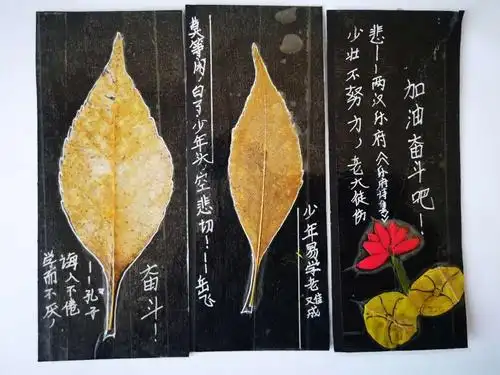 学而不厌，
诲人不倦
——孔子
奋斗！
莫等闲，白了少年头，空悲切！——岳飞
——少年易学老难成
少壮不努力，老大徒伤
悲——两汉乐府《乐府诗集》
加油奋斗吧！